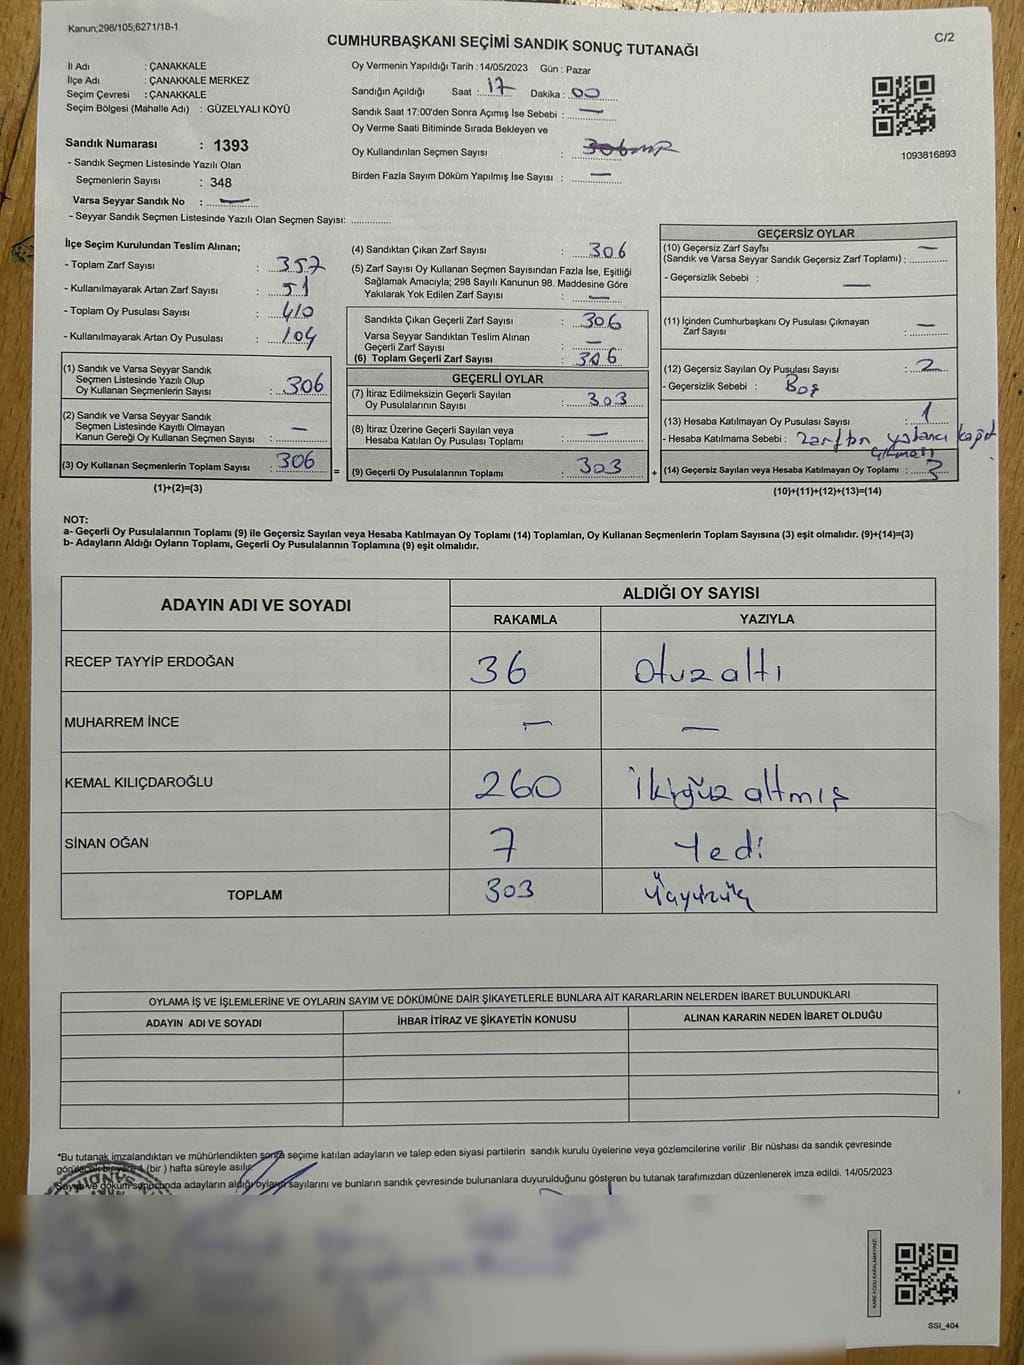 Kanun;298/105;6271/18-1
CUMHURBAŞKANI SEÇİMİ SANDIK SONUÇ TUTANAĞI
C/2
İl Adı : ÇANAKKALE
İlçe Adı : ÇANAKKALE MERKEZ
Seçim Çevresi : ÇANAKKALE
Seçim Bölgesi (Mahalle Adı) : GÜZELYALI KÖYÜ
Sandık Numarası : 1393
- Sandık Seçmen Listesinde Yazılı Olan
Seçmenlerin Sayısı : 348
Varsa Seyyar Sandık No : —
- Seyyar Sandık Seçmen Listesinde Yazılı Olan Seçmen Sayısı: ..............
Oy Vermenin Yapıldığı Tarih : 14/05/2023 Gün : Pazar
Sandığın Açıldığı Saat : 17 Dakika : 00
Sandık Saat 17:00'den Sonra Açımış İse Sebebi : —
Oy Verme Saati Bitiminde Sırada Bekleyen ve
Oy Kullandırılan Seçmen Sayısı :
Birden Fazla Sayım Döküm Yapılmış İse Sayısı : —
1093816893
İlçe Seçim Kurulundan Teslim Alınan;
- Toplam Zarf Sayısı : 357
- Kullanılmayarak Artan Zarf Sayısı : 51
- Toplam Oy Pusulası Sayısı : 410
- Kullanılmayarak Artan Oy Pusulası : 104
(1) Sandık ve Varsa Seyyar Sandık
Seçmen Listesinde Yazılı Olup
Oy Kullanan Seçmenlerin Sayısı : 306
(2) Sandık ve Varsa Seyyar Sandık
Seçmen Listesinde Kayıtlı Olmayan
Kanun Gereği Oy Kullanan Seçmen Sayısı : —
(3) Oy Kullanan Seçmenlerin Toplam Sayısı : 306 =
(1)+(2)=(3)
(4) Sandıktan Çıkan Zarf Sayısı : 306
(5) Zarf Sayısı Oy Kullanan Seçmen Sayısından Fazla İse, Eşitliği
Sağlamak Amacıyla; 298 Sayılı Kanunun 98. Maddesine Göre
Yakılarak Yok Edilen Zarf Sayısı : —
Sandıkta Çıkan Geçerli Zarf Sayısı : 306
Varsa Seyyar Sandıktan Teslim Alınan
Geçerli Zarf Sayısı : —
(6) Toplam Geçerli Zarf Sayısı : 306
GEÇERLİ OYLAR
(7) İtiraz Edilmeksizin Geçerli Sayılan
Oy Pusulalarının Sayısı : 303
(8) İtiraz Üzerine Geçerli Sayılan veya
Hesaba Katılan Oy Pusulası Toplamı : —
(9) Geçerli Oy Pusulalarının Toplamı : 303 +
GEÇERSİZ OYLAR
(10) Geçersiz Zarf Sayısı
(Sandık ve Varsa Seyyar Sandık Geçersiz Zarf Toplamı) : —
- Geçersizlik Sebebi : —
(11) İçinden Cumhurbaşkanı Oy Pusulası Çıkmayan
Zarf Sayısı : —
(12) Geçersiz Sayılan Oy Pusulası Sayısı : 2
- Geçersizlik Sebebi : Boş
(13) Hesaba Katılmayan Oy Pusulası Sayısı : 1
- Hesaba Katılmama Sebebi : zarftan yabancı kağıt
çıkması
(14) Geçersiz Sayılan veya Hesaba Katılmayan Oy Toplamı : 3
(10)+(11)+(12)+(13)=(14)
NOT:
a- Geçerli Oy Pusulalarının Toplamı (9) ile Geçersiz Sayılan veya Hesaba Katılmayan Oy Toplamı (14) Toplamları, Oy Kullanan Seçmenlerin Toplam Sayısına (3) eşit olmalıdır. (9)+(14)=(3)
b- Adayların Aldığı Oyların Toplamı, Geçerli Oy Pusulalarının Toplamına (9) eşit olmalıdır.
ADAYIN ADI VE SOYADI
ALDIĞI OY SAYISI
RAKAMLA YAZIYLA
RECEP TAYYİP ERDOĞAN 36 Otuzaltı
MUHARREM İNCE — —
KEMAL KILIÇDAROĞLU 260 İkiyüz altmış
SİNAN OĞAN 7 Yedi
TOPLAM 303 Üçyüzüç
OYLAMA İŞ VE İŞLEMLERİNE VE OYLARIN SAYIM VE DÖKÜMÜNE DAİR ŞİKAYETLERLE BUNLARA AİT KARARLARIN NELERDEN İBARET BULUNDUKLARI
ADAYIN ADI VE SOYADI İHBAR İTİRAZ VE ŞİKAYETİN KONUSU ALINAN KARARIN NEDEN İBARET OLDUĞU
*Bu tutanak imzalandıktan ve mühürlendikten sonra seçime katılan adayların ve talep eden siyasi partilerin sandık kurulu üyelerine veya gözlemcilerine verilir .Bir nüshası da sandık çevresinde
görülecek bir yere 1 (bir ) hafta süreyle asılır.
Sayım ve döküm sonucunda adayların aldığı oyların sayılarını ve bunların sandık çevresinde bulunanlara duyurulduğunu gösteren bu tutanak tarafımızdan düzenlenerek imza edildi. 14/05/2023
KARE KODU KARALAMAYINIZ!
SSI_404